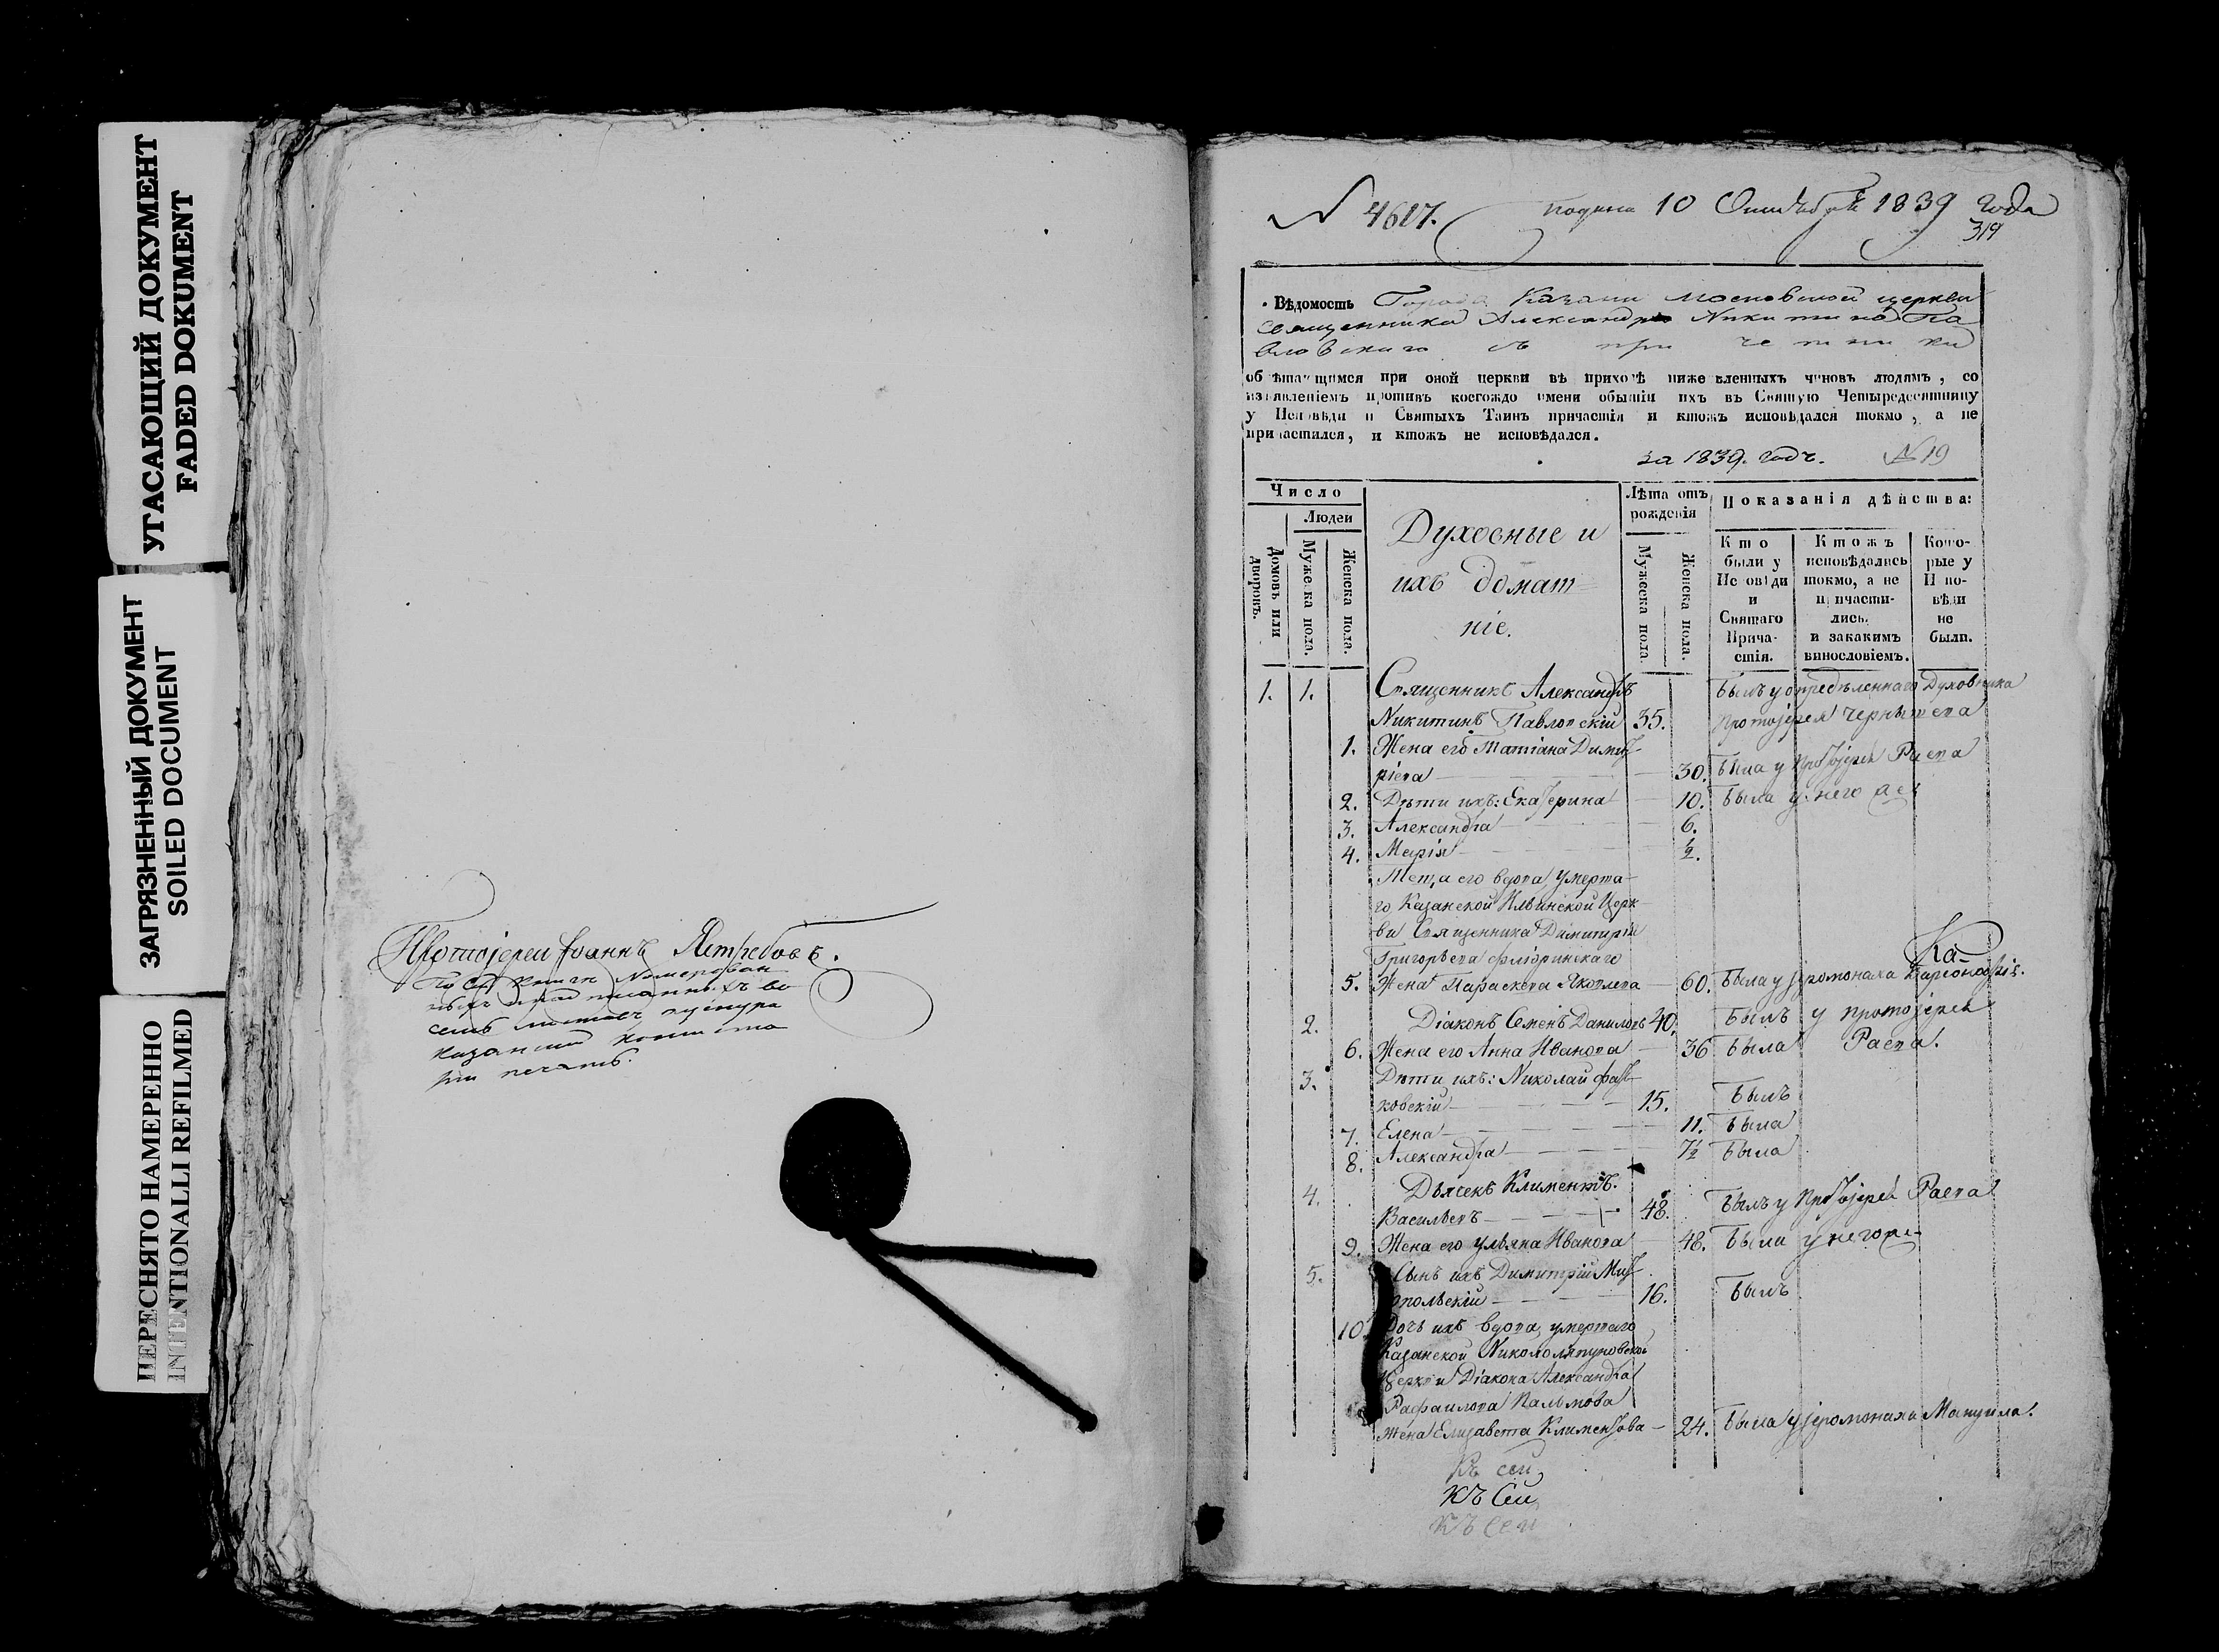 УГАСАЮЩИЙ ДОКУМЕНТ
FADED DOKUMENT
ЗАГРЯЗНЕННЫЙ ДОКУМЕНТ
SOILED DOCUMENT
ПЕРЕСНЯТО НАМЕРЕННО
INTENTIONALLI REFILMED
Протоіерей Іоаннъ Ястребовъ.
печать.
№ 4617. 10 1839 года
319
Вѣдомость Города Казани Московской церкви
священника Александра Никитина Па
вловскаго съ причетники
обрѣтающимся при оной церкви въ приходѣ нижеявленныхъ чиновъ людямъ, со
изъявленіемъ противъ коегождо имени обытіи ихъ въ Святую Четыредесятницу
у Исповѣди и Святыхъ Таинъ причастія и ктожъ исповѣдался токмо, а не
причастился, и ктожъ не исповѣдался.
за 1839. годъ. № 19
Число
Людей
Домовъ или дворовъ.
Мужеска пола.
Женска пола.
Духовные и
ихъ домаш=
ніе.
Лѣта отъ
рожденія
Мужеска пола.
Женска пола.
Показанія дѣйства:
Кто
были у
Исповѣди
и
Святаго
Прича-
стія.
Ктожъ
исповѣдались
токмо, а не
причасти-
лись.
и закакимъ
винословіемъ.
Кото-
рые у
Испо-
вѣди
не
были.
1. 1. Священникъ Александръ Былъ у опредѣленнаго Духовника
Никитинъ Павловскій 35. протоіерея Чернышева
1. Жена его Татіана Димит-
ріева 30. Была у Протоіерея Раева
2. Дѣти ихъ: Екатерина 10. Была у него же
3. Александра 6.
4. Марія ½.
Теща его вдова умерша-
го Казанской Ильинской Церк-
ви Священника Димитрія
Григорьева Флоринскаго
5. Жена Параскева Яковлева 60. Была у іеромонаха
2. Діаконъ Семенъ Даниловъ 40. Былъ у протоіерея
6. Жена его Анна Иванова 36 Была Раева.
3. Дѣти ихъ: Николай
ковскій 15. Былъ
7. Елена 11. Была
8. Александра 7½ Была
4. Дьячекъ Климентъ.
Васильевъ 48. Былъ у Протоіерея Раева
9. Жена его Ульяна Иванова 48. Была у негоже
5. Сынъ ихъ Димитрій Мит-
ропольскій 16. Былъ
10. Дочь ихъ вдова, умершаго
Казанской Никололяпуновской
Церкви Діакона Александра
Рафаилова Пальмова
Жена Елизавета Климентова 24. Была у іеромонаха Мануила.
Къ сей
Къ Сей
Къ Сей